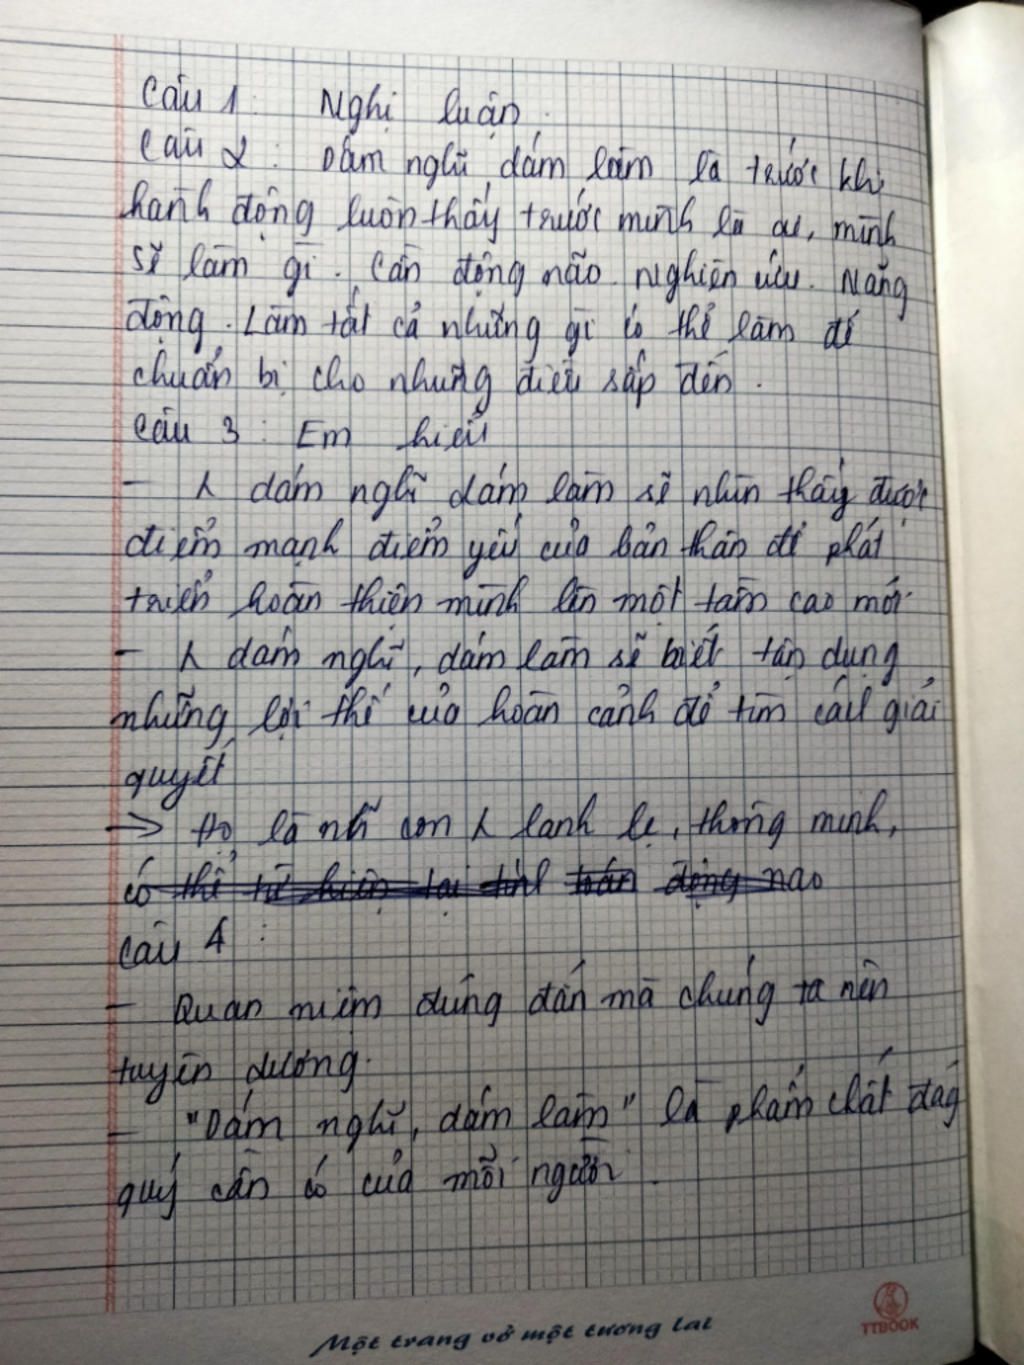 Câu 1: Nghị luận.
Câu 2: Dám nghĩ dám làm là trước khi
hành động luôn thấy trước mình là ai, mình
sẽ làm gì. Cần động não. nghiên cứu. Năng
động. Làm tất cả những gì có thể làm để
chuẩn bị cho những điều sắp đến.
Câu 3: Em hiểu
- λ dám nghĩ dám làm sẽ nhìn thấy được
điểm mạnh điểm yếu của bản thân để phát
triển hoàn thiện mình lên một tầm cao mới
- λ dám nghĩ, dám làm sẽ biết tận dụng
những lợi thế của hoàn cảnh để tìm cách giải
quyết
→ Họ là nh~ con λ lanh lẹ, thông minh,
có thể từ hiện tại tính toán động não
Câu 4:
- Quan niệm đúng đắn mà chúng ta nên
tuyên dương.
- "Dám nghĩ, dám làm" là phẩm chất đáng
quý cần có của mỗi người.
Một trang vở một tương lai
TTBOOK